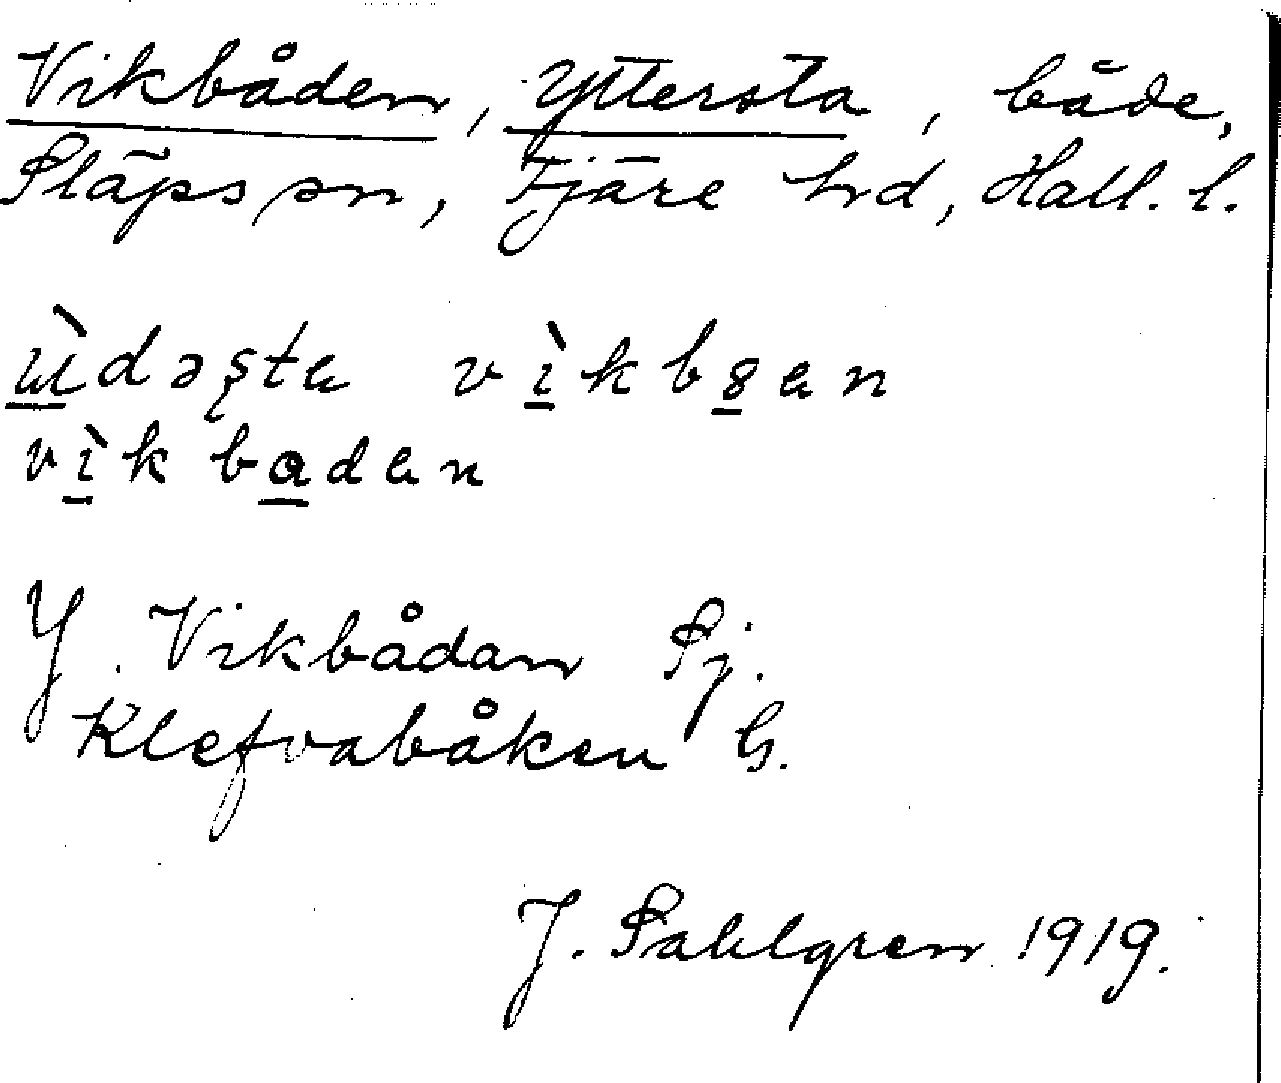 Vikbåden, Yttersta, både,
Släps sn, Fjäre hrd, Hall. l.
ù̱dəs̨ta vì̱kb8̱an
vì̱k ba̱dan
Y. Vikbådan Sj.
Klefvabåken G.
J. Sahlgren 1919.